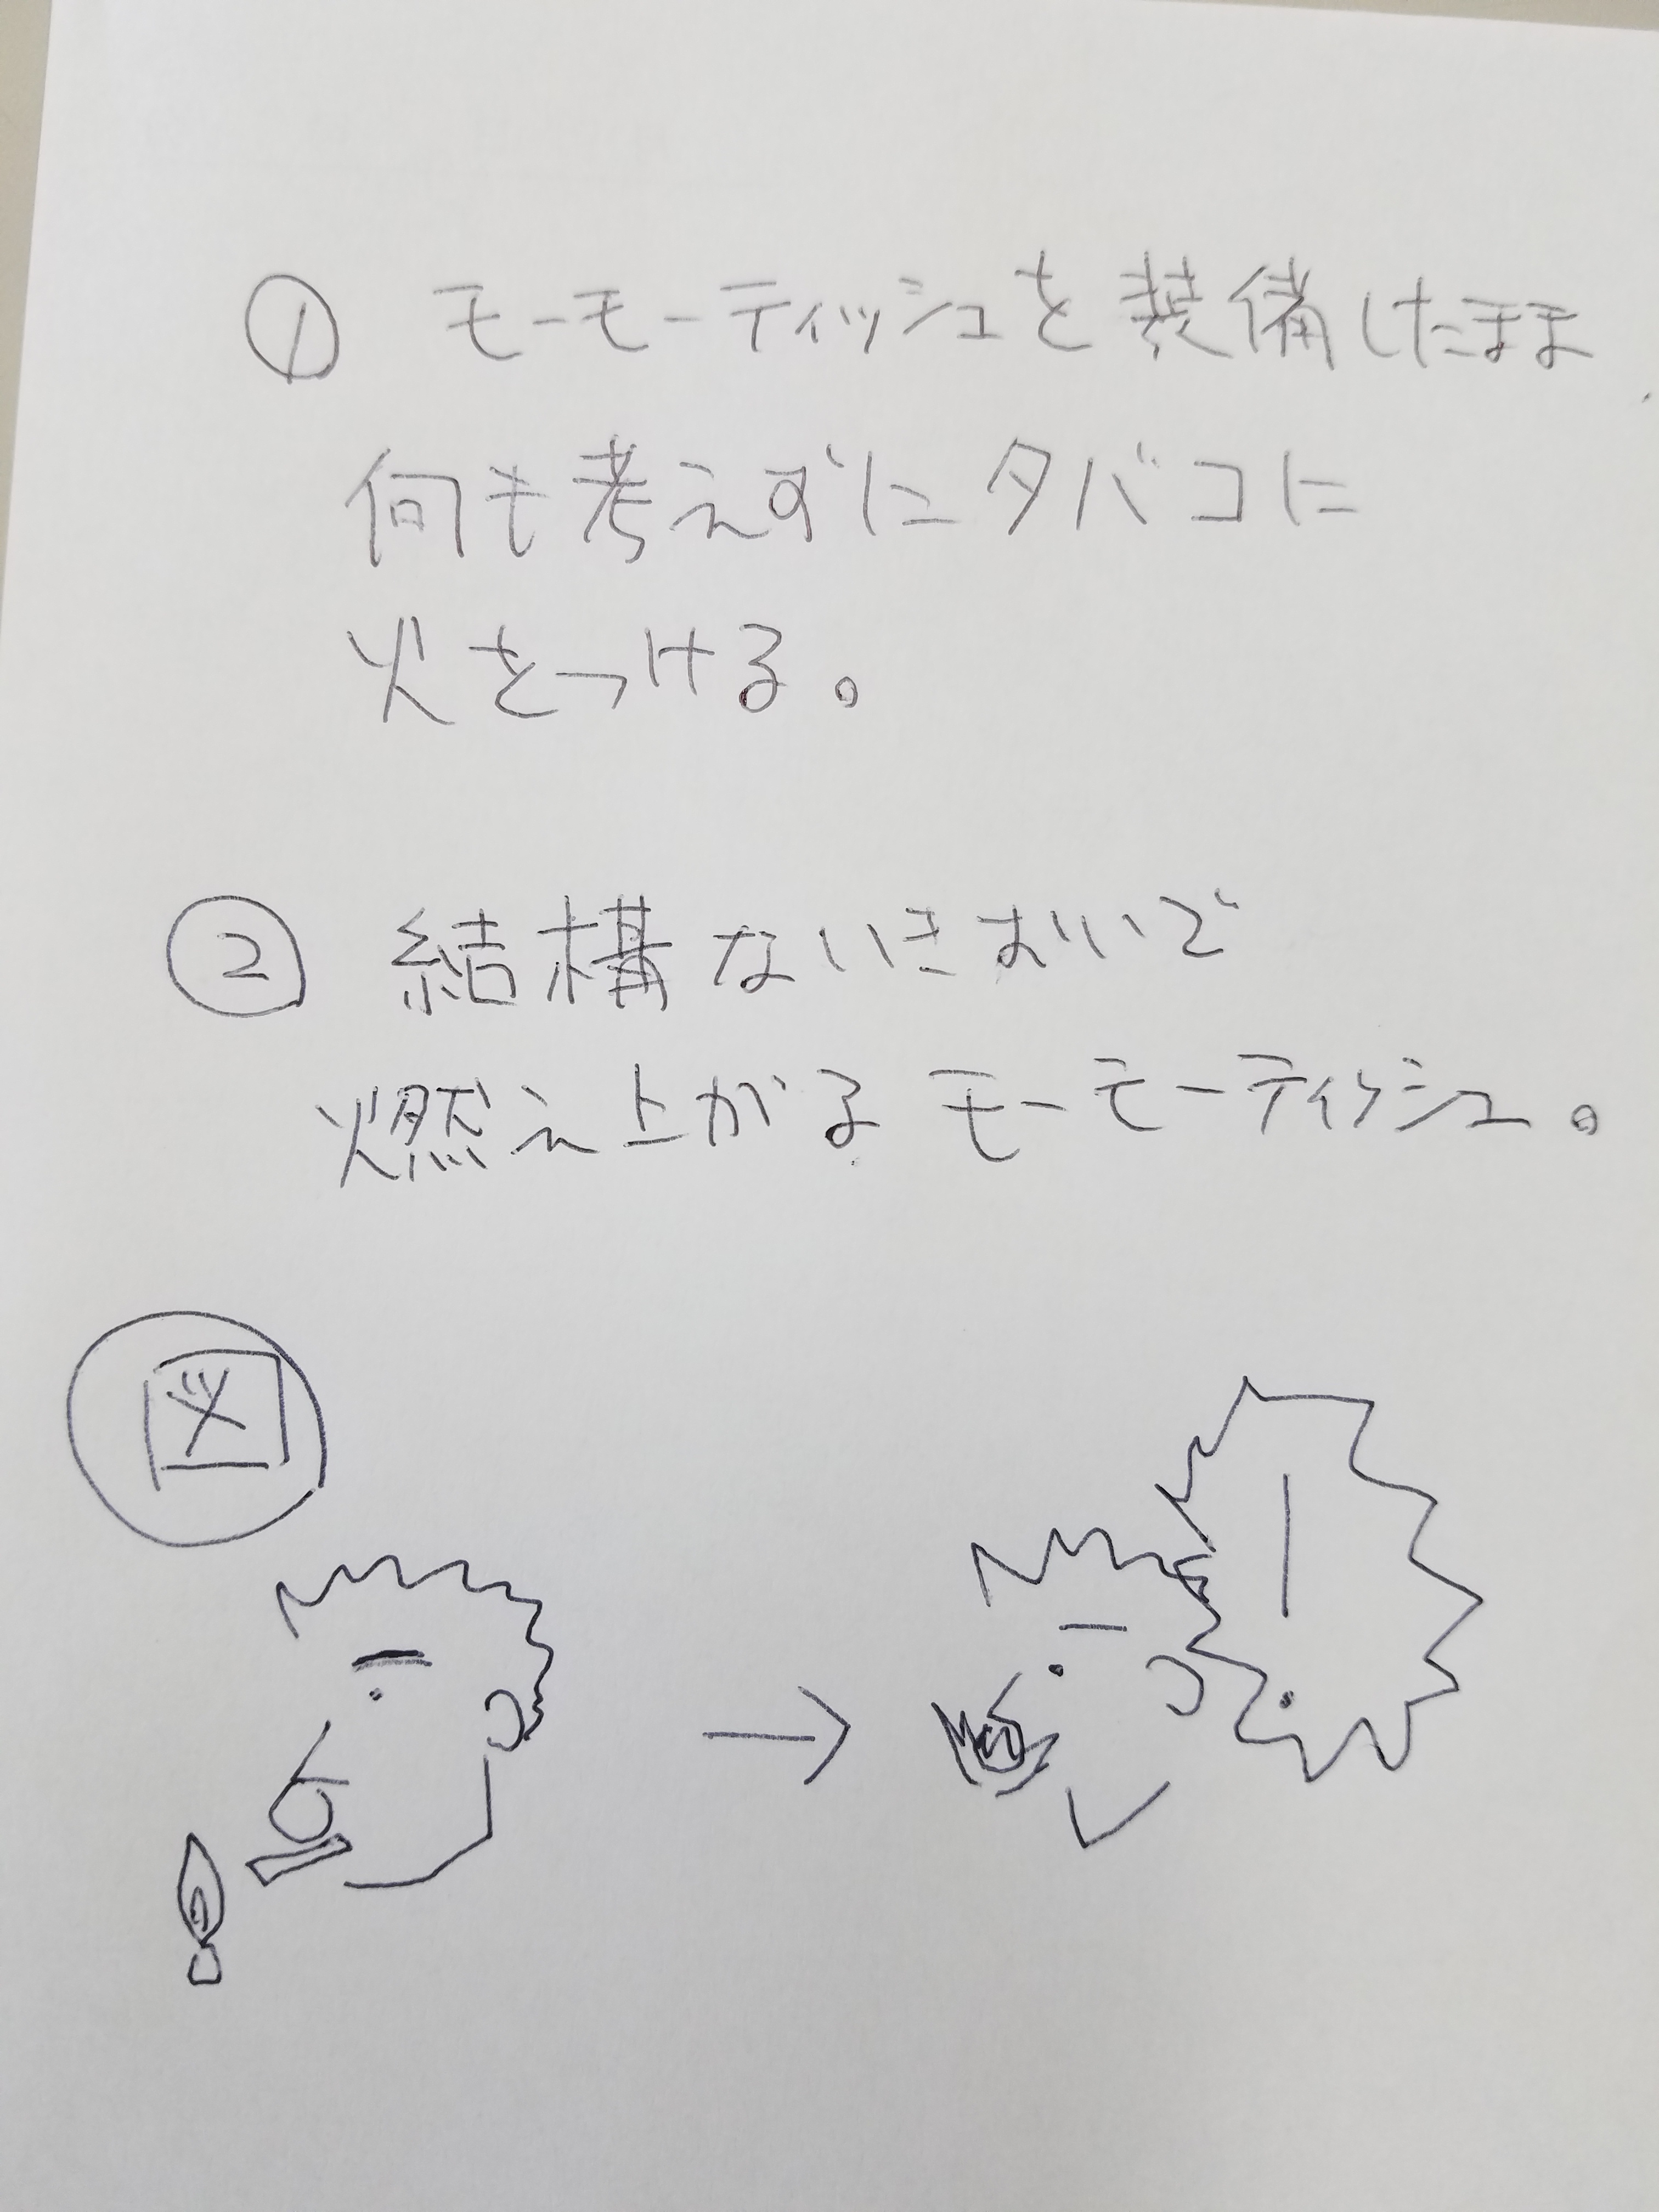 ① モーモーティッシュを装備したまま
何も考えずにタバコに
火をつける。
② 結構ないきおいで
燃え上がるモーモーティッシュ。
図
！